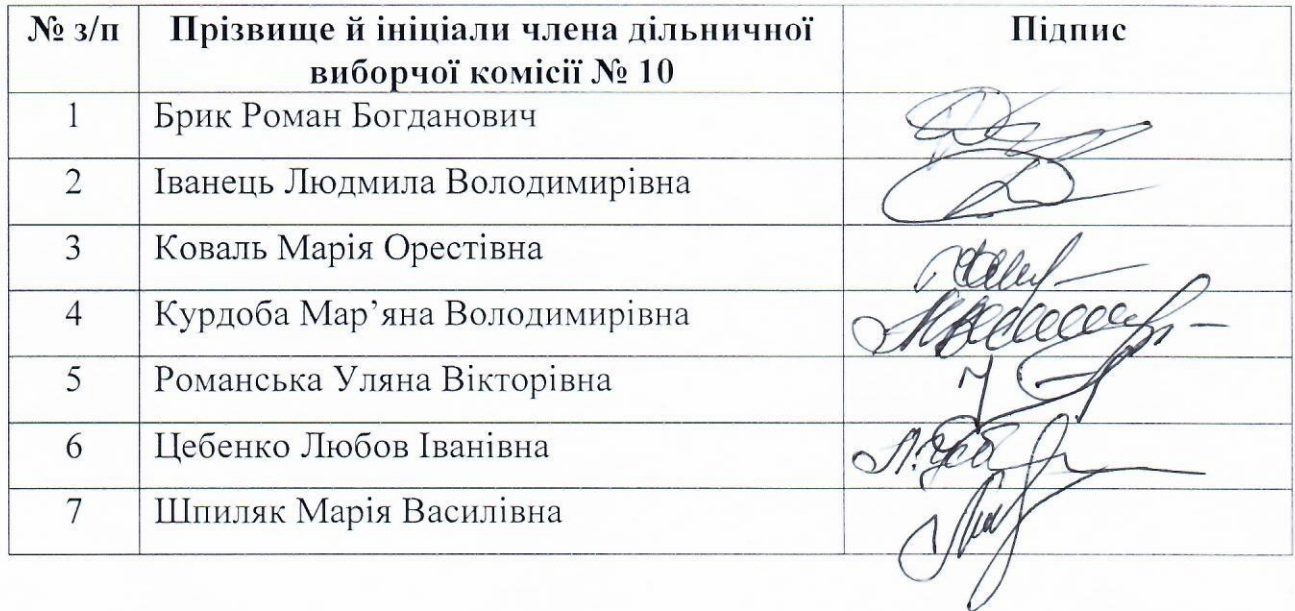 № з/п Прізвище й ініціали члена дільничної Підпис
виборчої комісії № 10
1 Брик Роман Богданович
2 Іванець Людмила Володимирівна
3 Коваль Марія Орестівна
4 Курдоба Мар’яна Володимирівна
5 Романська Уляна Вікторівна
6 Цебенко Любов Іванівна
7 Шпиляк Марія Василівна